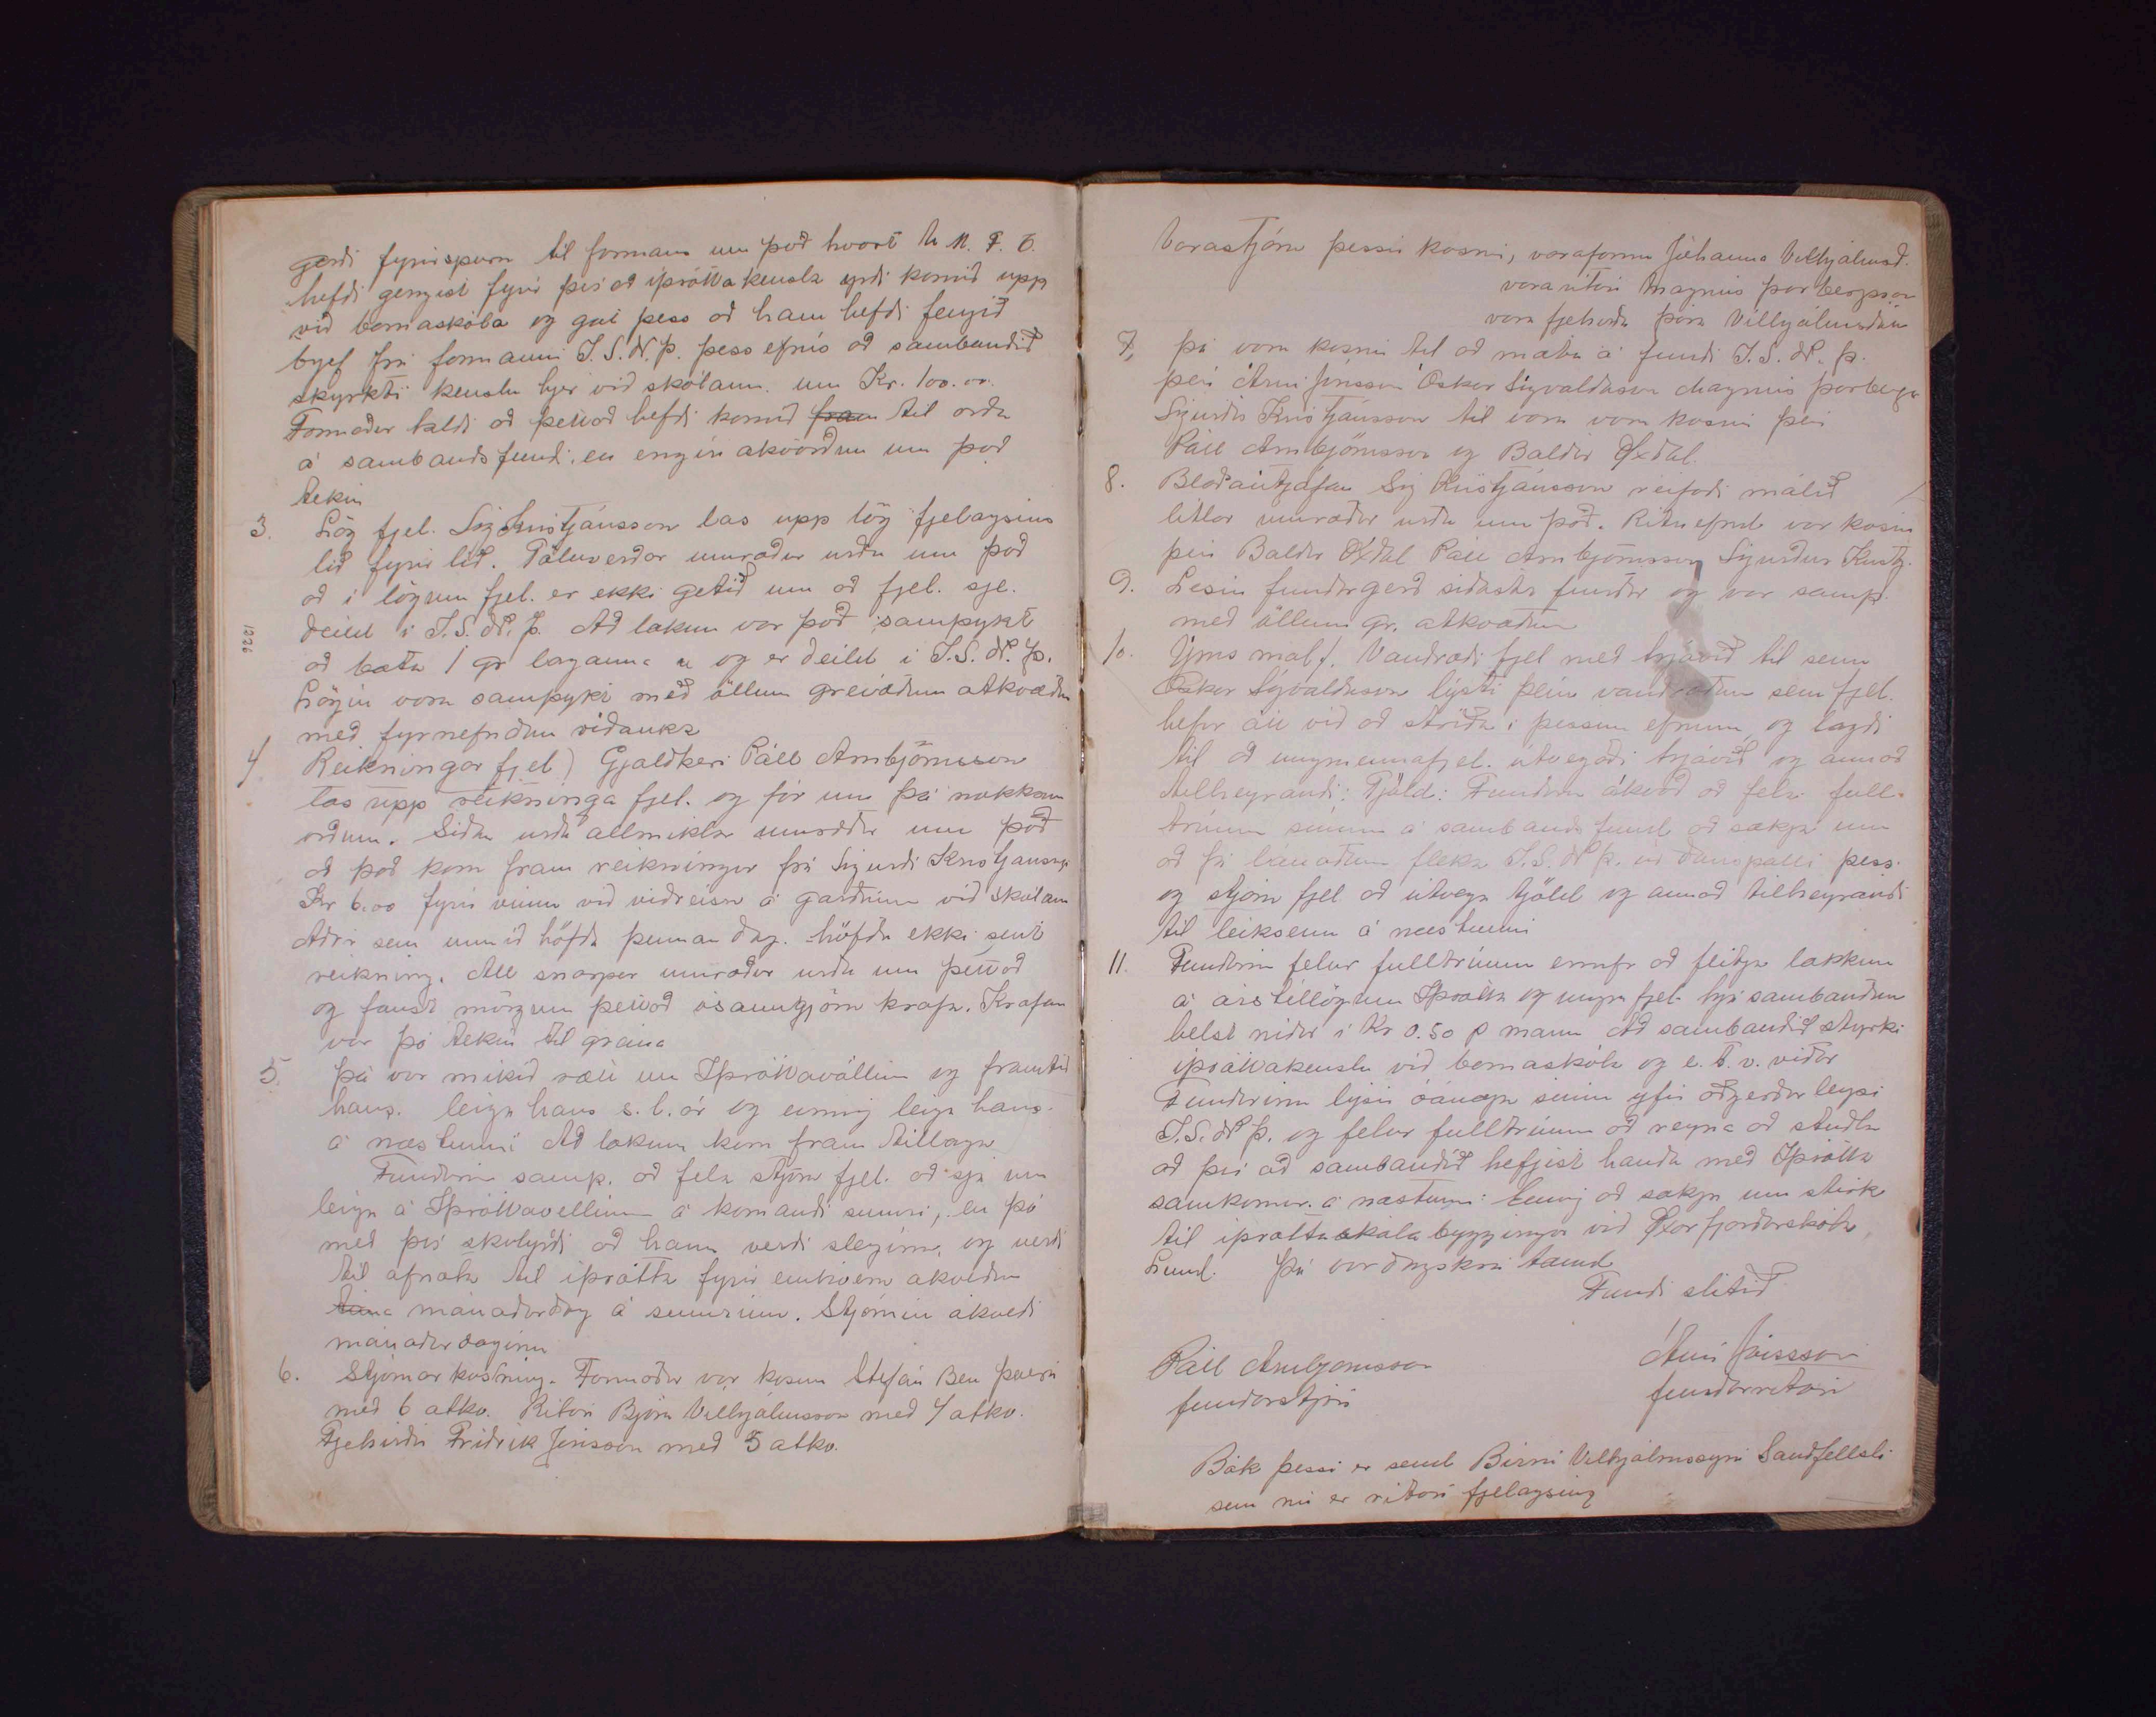 gerði fyrirspurn til formans um það hvort U.M.F.Ö.
hefði gengist fyrir því að íþróttakensla yrði komið upp
við barnaskóla og gat þess að hann hefði fengið
brjef frá formanni I.S.N.Þ. þess efnis að sambandið
styrkti kenslu hjer við skólann um Kr. 100.00.
Formaður taldi að þettað hefði komið til orða
á sambandsfundi, en engin ákvörðun um það
tekin
3. Lög fjel. Sig Kristjánsson las upp lög fjelagsins
lið fyrir lið. Töluverðar umræður urðu um það
að í lögum fjel. er ekki getið um að fjel. sje.
deild í I.S.N.Þ. Að lokum var það samþykt
að bæta 1 gr laganna og er deild í I.S.N.Þ.
Lögin voru samþykt með öllum greiddum atkvæðum
með fyrnefndum viðauka
1226
4 Reikningar fjel) Gjaldkeri Páll Arnbjörnsson
las upp reikninga fjel. og fór um þá nokkrum
orðum. Síðan urðu allmiklar umræður um það
að það kom fram reikningur frá Sigurði Kristjánssyni
Kr 6.00 fyrir vinnu við viðreisn á garðinum við skólann
Aðrir sem unnið höfðu þennan dag. höfðu ekki sent
reikning. All snarpar umræður urðu um þettað
og fanst mörgum þettað ósanngjörn krafa. Krafan
var þó tekin til greina
5. Þá var mikið rætt um Íþróttavöllinn og framtíð
hans. leigu hans s.l. ár og einnig leigu hans
á næstunni Að lokum kom fram tillaga
Fundurinn samþ. að fela stjórn fjel. að sjá um
leigu á Íþróttavellinum á komandi sumri, en þó
með því skilyrði að hann verði sleginn, og verði
til afnota til íþrótta fyrir einhvern ákveðin
mánaðardag á sumrinu. Stjórnin ákveði
mánaðardaginn
6. Stjórnarkosning. Formaður var kosinn Stefán Ben
með 6 atkv. Ritari Björn Vilhjálmsson með 4 atkv.
Fjehirðir Friðrik Jónsson með 5 atkv.
Varastjórn þessir kosnir, varaform Jóhanna Vilhjálmsd.
vararitari Magnús Þorbergsson
vara fjehirðir Þóra Vilhjálmsdóttir
7, Þá voru kosnir til að mæta á fundi I.S.N.Þ.
þeir Árni Jónsson Óskar Sigvaldason Magnús Þorbergs
Sigurður Kristjánsson til vara voru kosnir þeir
Páll Arnbjörnsson og Baldur Öxdal.
8. Blaðaútgáfan Sig Kristjánsson reifaði málið
litlar umræður urðu um það. Ritnefnd var kosin
þeir Baldur Öxdal Páll Arnbjörnsson Sigurður Kristj.
9. Lesin fundargerð síðasta fundar og var samþ.
með öllum gr. atkvæðum
10. Ýms mál/. Vandræði fjel með trjávið til senu
Óskar Sigvaldason lýsti þeim vandræðum sem fjel.
hefur átt við að stríða í þessum efnum, og lagði
til að ungmennafjel. útvegaði trjávið og annað
tilheyrandi: Tjöld: Fundurinn ákvað að fela full-
trúum sínum á sambandsfund að sækja um
að fá lánaðan fleka I.S.N.Þ. úr danspalli þess.
og stjórn fjel að útvega tjöld og annað tilheyrandi
til leiksenu á næstunni
11. Fundurinn felur fulltrúum að flitja lækkun
á árstillögum Íþrótta og ungm fjel. hjá sambandinu
helst niður í Kr 0.50 p mann Að sambandið styrki
íþróttakenslu við barnaskóla og e.t.v. víðar
Fundurinn lýsir óánægju sinni yfir aðgerðarleysi
I.S.N.Þ. og felur fulltrúum að reyna að stuðla
að því að sambandið hefjist handa með Íþrótta
samkomur á næstunni: Einnig að sækja um stirk
til íþróttaskála byggingar við Öxarfjarðarskóla
Lund. Þá var dagskrá tæmd
Fundi slitið
Páll Arnbjörnsson
fundarstjóri
Árni Jónsson
fundarritari
Bók þessi er send Birni Vilhjálmssyni Sandfellshaga
sem nú er ritari fjelagsins